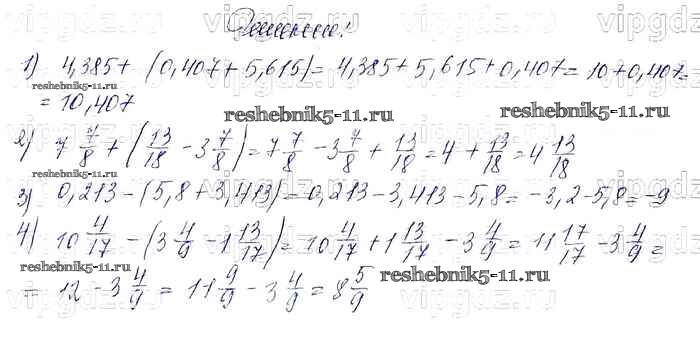 Решение:
1) 4,385 + (0,407 + 5,615) = 4,385 + 5,615 + 0,407 = 10 + 0,407 =
= 10,407
2) 7 7/8 + (13/18 - 3 7/8) = 7 7/8 - 3 7/8 + 13/18 = 4 + 13/18 = 4 13/18
3) 0,213 - (5,8 + 3,413) = 0,213 - 3,413 - 5,8 = -3,2 - 5,8 = -9
4) 10 4/17 - (3 4/9 - 1 13/17) = 10 4/17 + 1 13/17 - 3 4/9 = 11 17/17 - 3 4/9 =
= 12 - 3 4/9 = 11 9/9 - 3 4/9 = 8 5/9
vipgdz.ru
reshebnik5-11.ru
reshebnik5-11.ru
reshebnik5-11.ru
reshebnik5-11.ru
reshebnik5-11.ru